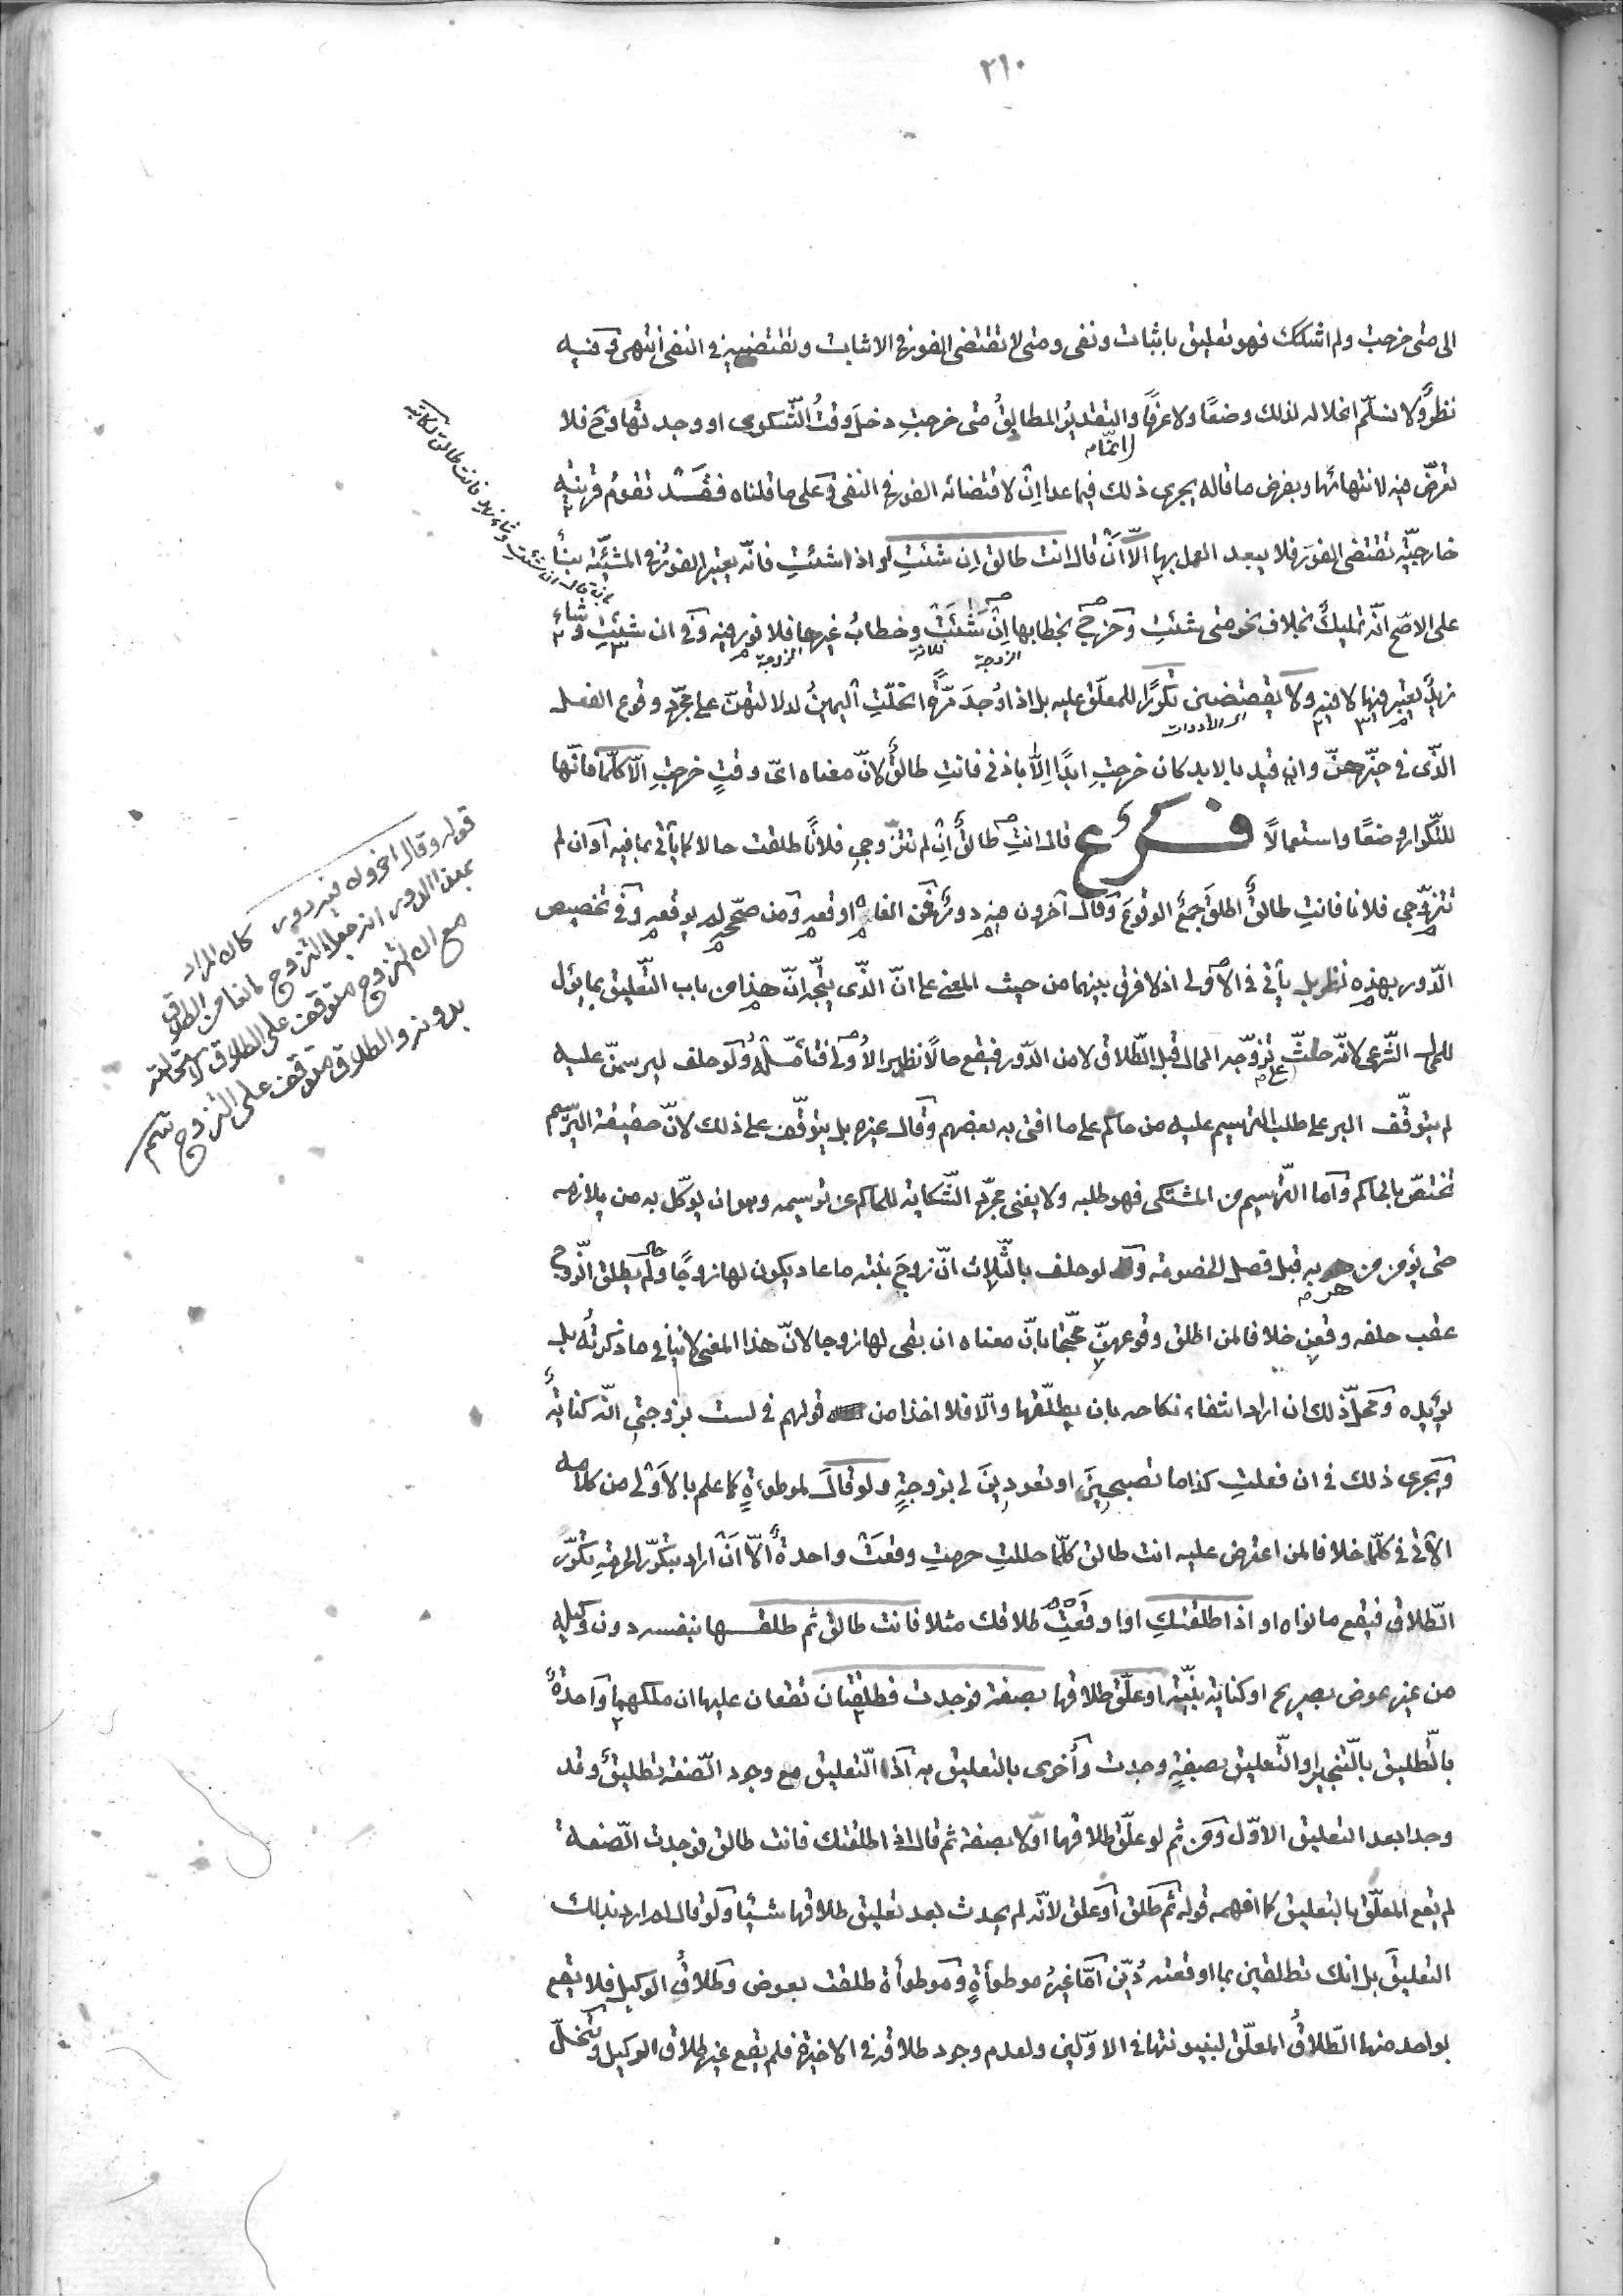 ٢١٠
الى متى خرجت ولم اشكك فهو تعليق باثبات ونفى ومتى لا تقتضى الفور فى الاثبات وتقتضيه فى النفى انتهى وفيه
نظر ولا نسلّم انحلاله لذلك وضعًا ولا عرفًا والتقدير المطابق متى خرجتِ دخل وقتُ الشّكوى او وجد تها وح فلا
تعرّض فيه لانتهائها وبفرض ما قاله يجرى ذلك فيما عدا اِنْ لاقتضائه الفور فى النفى وعلى ما قلناه فقد تقوم قرينة
خارجيّة تقتضى الفور فلا يبعد العمل بها الّا انْ قال انت طالق اِن شئتِ او اذا شئتِ فانّه يعتبر الفور فى المشيّئة بناءً
على الاصّح انّه تمليك بخلاف نحو متى شئتِ وخرج بخطابها اِنْ شَئَتْ وخطابُ غيرها فلا فور فيه وفى ان شئتِ وشاء
الزوجة
فلانة
الزوجة
زيدٌ يعتبر فيها لا فيه ولا يقتضين تكرارًا للمعلّق عليه بل اذا وُجدَ مّرة انحلّتِ اليمينُ لدلالتهنّ على مجرّد وقوع الفعل
اى الأدوات
الّذى فى حيّزهنّ وان قيد بالابد كان خرجتِ ابدًا اِلّا باذنى فانتِ طالقٌ لانّ معناه اىّ وقتٍ خرجتِ الّا كلّما فانّها
للتّكرار وضعًا واستعمالًا فرع قال انتِ طالقٌ اِنْ لم تتزّوجى فلانًا طلقت حالا كما يأتى بما فيه او ان لم
تتزوّجى فلانا فانتِ طالقٌ اطلق جمع الوقوع وقال آخرون فيه دور فمن الغاه اوقعه ومن صحّحه لم يوقعه وفى تخصيص
الدّور بهذه نظر بل يأتى فى الاولى اذ لا فرق بينهما من حيث المعنى على انّ الذّى يتّجه انّ هذا من باب التّعليق بما يؤل
للمحال الشّرعى لانّه حثّ تزوّجه المحال قبل الطّلاق لا من الدّور فيقع حالًا نظير الاولى فتأمّله ولو حلف ليرسمنّ عليه
لم يتوقّف البر على طلب التّرسيم عليه من حاكم على ما افتى به بعضهم وقال غيره بل يتوقّف على ذلك لانّ حقيقة التّرسيم
تختصّ بالحاكم وامّا التّرسيم من المشتكى فهو طلبه ولا يغنى مجرّد الشّكاية للحاكم عن ترسيمه وهو ان يوكّل به من يلازمه
حتى يؤمن من هربه قبل فصل الخصومة ولو حلف بالثّلاث انّ زوجَ بنته ما عاد يكون لها زوجًا ولم يطلق الزّوج
عقب حلفه وقعن خلافا لمن اطلق وقوعهنّ محتجّا بانّ معناه ان بقى لها زوجا لانّ هذا المعنى لا ينافى ما ذكرتُه بل
يؤيّده ومحلّ ذلك ان اراد انتفاء نكاحه بان يطلّقها والّا فلا اخذا من قولهم فى لست بزوجتى انّه كنايةٌ
ويجرى ذلك فى ان فعلتِ كذا ما تصبحينَ او تعودينَ لى بزوجةٍ ولو قال لموطوءةٍ كما علم بالاَوْلى من كلامه
الآتى فى كلّما خلافا لمن اعترض عليه انت طالق كلّما حللتِ حرمتِ وقعتْ واحدةٌ الّا انْ اراد بتكرّر الحرمة تكرّر
الطّلاق فيقع ما نواه او اذا طلقتكِ او اوقعتِ طلاقك مثلا فانت طالق ثم طلقها بنفسه دون وكيله
من غير عوض بصريح او كناية بنيّة او علّق طلاقها بصفة فوجدت فطلقتان تقعان عليها ان ملكهما واحدةٌ
بالتّطليق بالتّنجيز او التّعليق بصفةٍ وجدت وأخرى بالتعليق به اذ التّعليق مع وجود الصّفة تطليقٌ وقد
وجدا بعد التعليق الاوّل ومن ثم لو علّق طلاقها اوّلا بصفة ثم قال اذا طلقتك فانت طالق فوجدت الصّفة
لم يقع المعلّق بالتعليق كما افهمه قوله ثم طلق او علق لانّه لم يحدث بعد تعليق طلاقها شيئا ولو قال لم ارد بذلك
التعليقَ بل انك تطلقين بما اوقعته دُيّن امّا غيرُ موطوأةٍ وموطوأة طلقت بعوض وطلاقُ الوكيل فلا يقع
بواحد منها الطّلاقُ المعلّق لبينونتها فى الاوّلين ولعدم وجود طلاقه فى الاخيرة فلم يقع غير طلاق الوكيل وتنحلّ
قوله وقال اخرون فيه دور كان المراد
بهذا الدور انه جعل التزوج مانعا من الطلاق
مع ان التزوج متوقف على الطلاق لاستحالته
بدونه والطلاق متوقف على التزوج سم